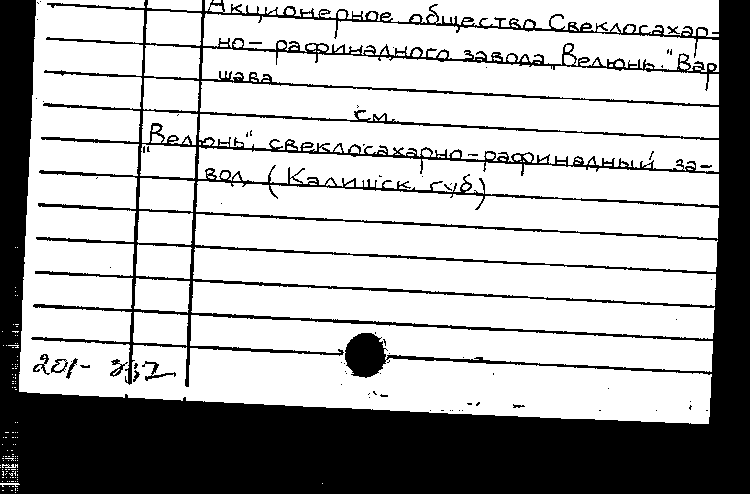 Акционерное общество Свеклосахар-
но-рафинадного завода „Велюнь." Вар
шава
см.
„Велюнь", свеклосахарно-рафинадный за-
вод, (Калишск. губ.)
201-